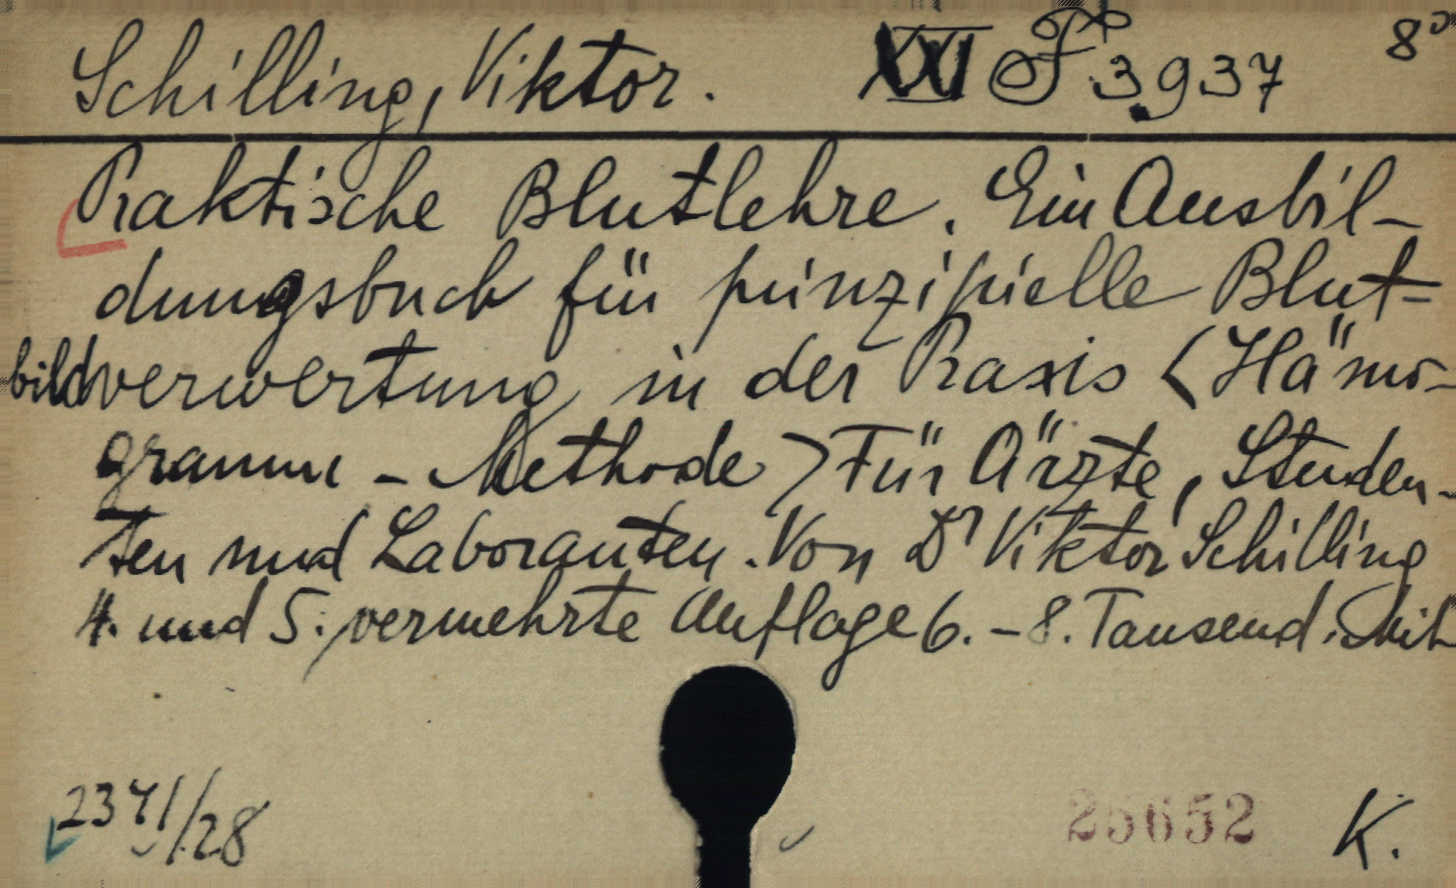 Schilling, Viktor. XXI F 3937 8°
Praktische Blutlehre. Ein Ausbil-
dungsbuch für prinzipielle Blut-
bildverwertung in der Praxis <Hämo-
gramm - Methode> Für Ärzte, Studen-
ten und Laboranten. Von Dr Viktor Schilling
4. und 5. vermehrte Auflage 6. - 8. Tausend. Mit
2371/28
25652 K.